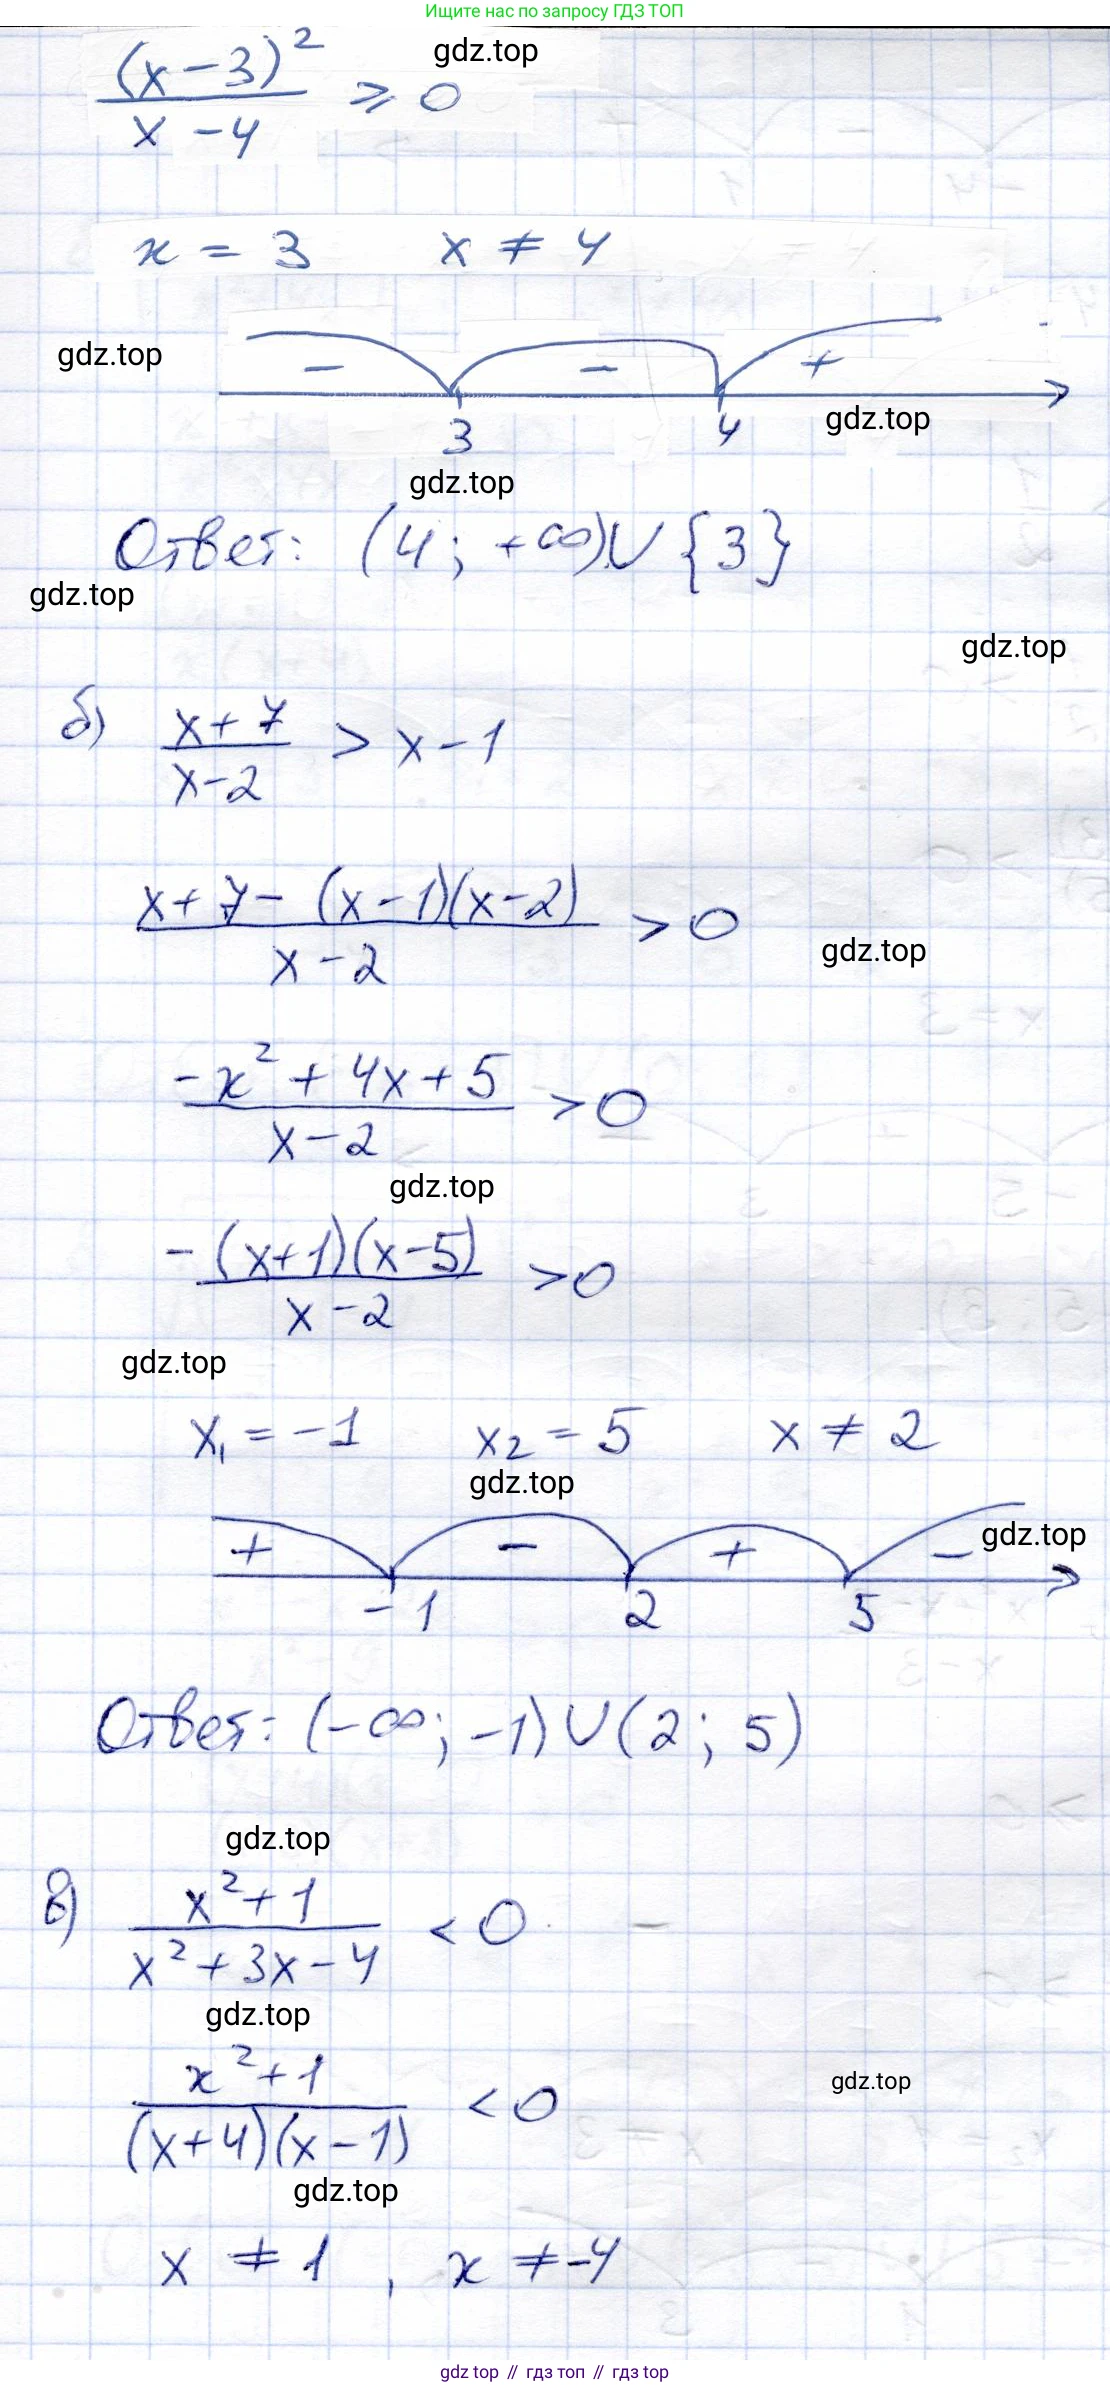 Ищите нас по запросу ГДЗ ТОП
(x-3)²/(x-4) ⩾ 0
gdz.top
x = 3 x ≠ 4
gdz.top
- - +
3 4
gdz.top
gdz.top
Ответ: (4; +∞)∪{3}
gdz.top
gdz.top
б) (x+7)/(x-2) > x-1
(x+7-(x-1)(x-2))/(x-2) > 0
gdz.top
(-x²+4x+5)/(x-2) > 0
gdz.top
-(x+1)(x-5)/(x-2) > 0
gdz.top
x₁ = -1 x₂ = 5 x ≠ 2
gdz.top
+ - + -
gdz.top
-1 2 5
Ответ: (-∞; -1)∪(2; 5)
gdz.top
в) (x²+1)/(x²+3x-4) < 0
gdz.top
(x²+1)/((x+4)(x-1)) < 0
gdz.top
gdz.top
x ≠ 1, x ≠ -4
gdz top // гдз топ // гдз top